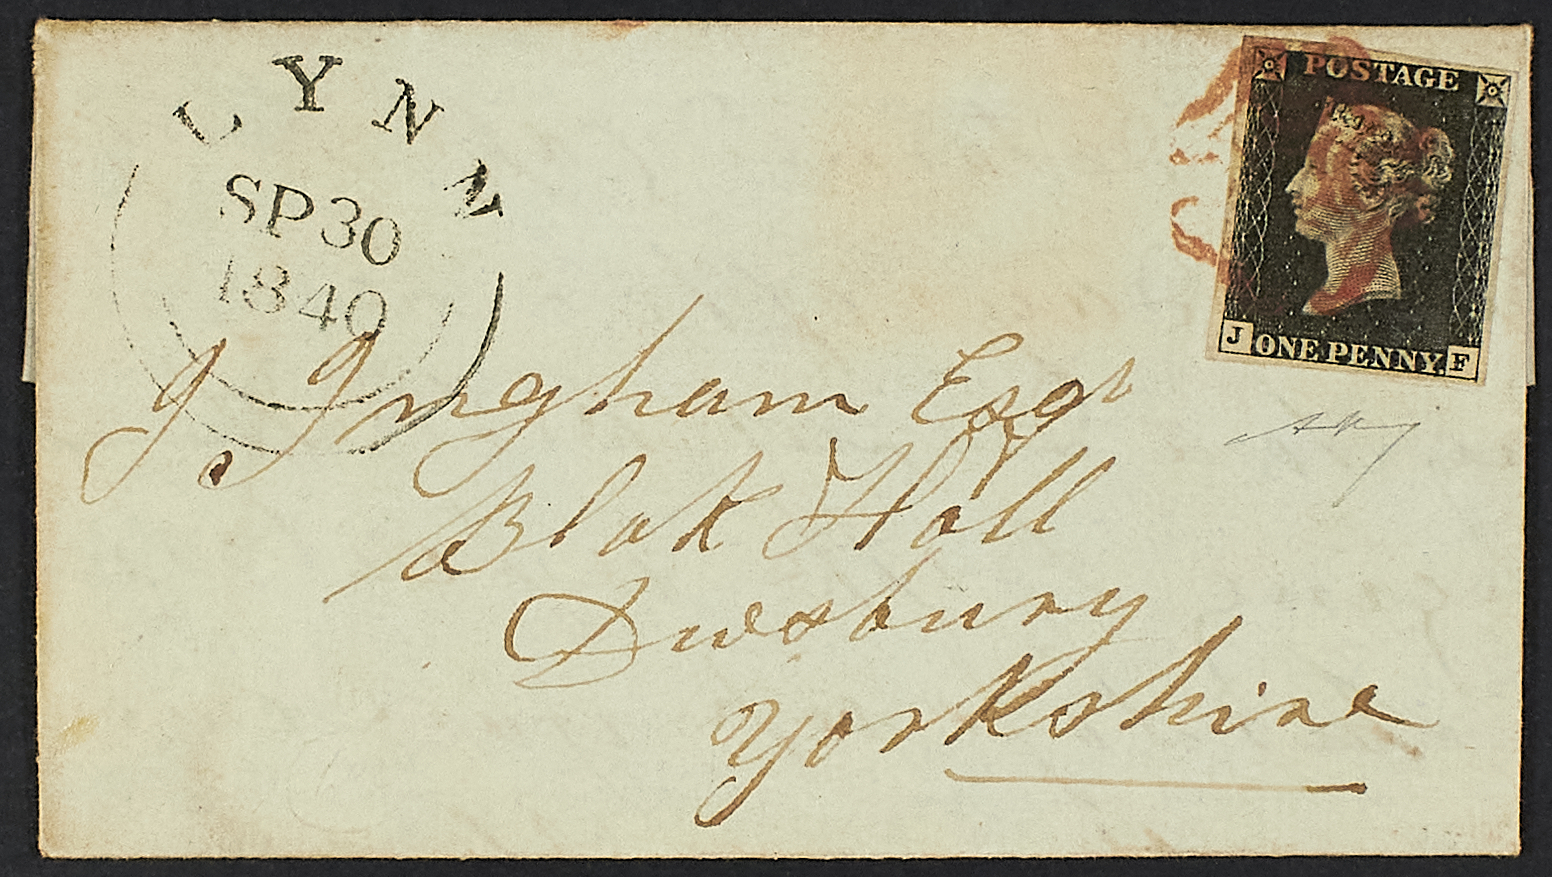 LYNN
SP30
1840
POSTAGE
J ONE PENNY. F
J. Ingham Esqr
Blak Hall
Dwsbury
Yorkshire